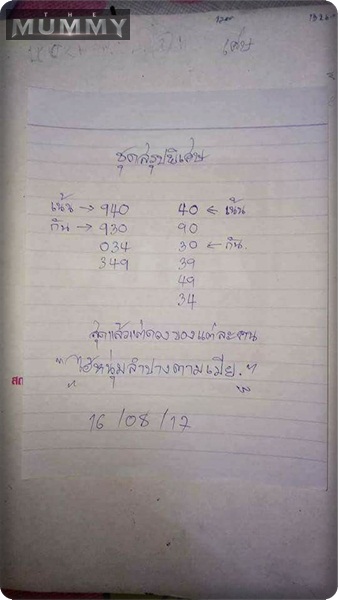 THE
MUMMY
เศษ
ชุดสรุปพิเศษ
เน้น → 940 40 ← เน้น
กัน → 930 90
034 30 ← กัน.
349 39
49
34
สุดแล้วแต่ดวงของแต่ละคน
"ไอ้หนุ่มลำปางตามเมีย."
16/08/17